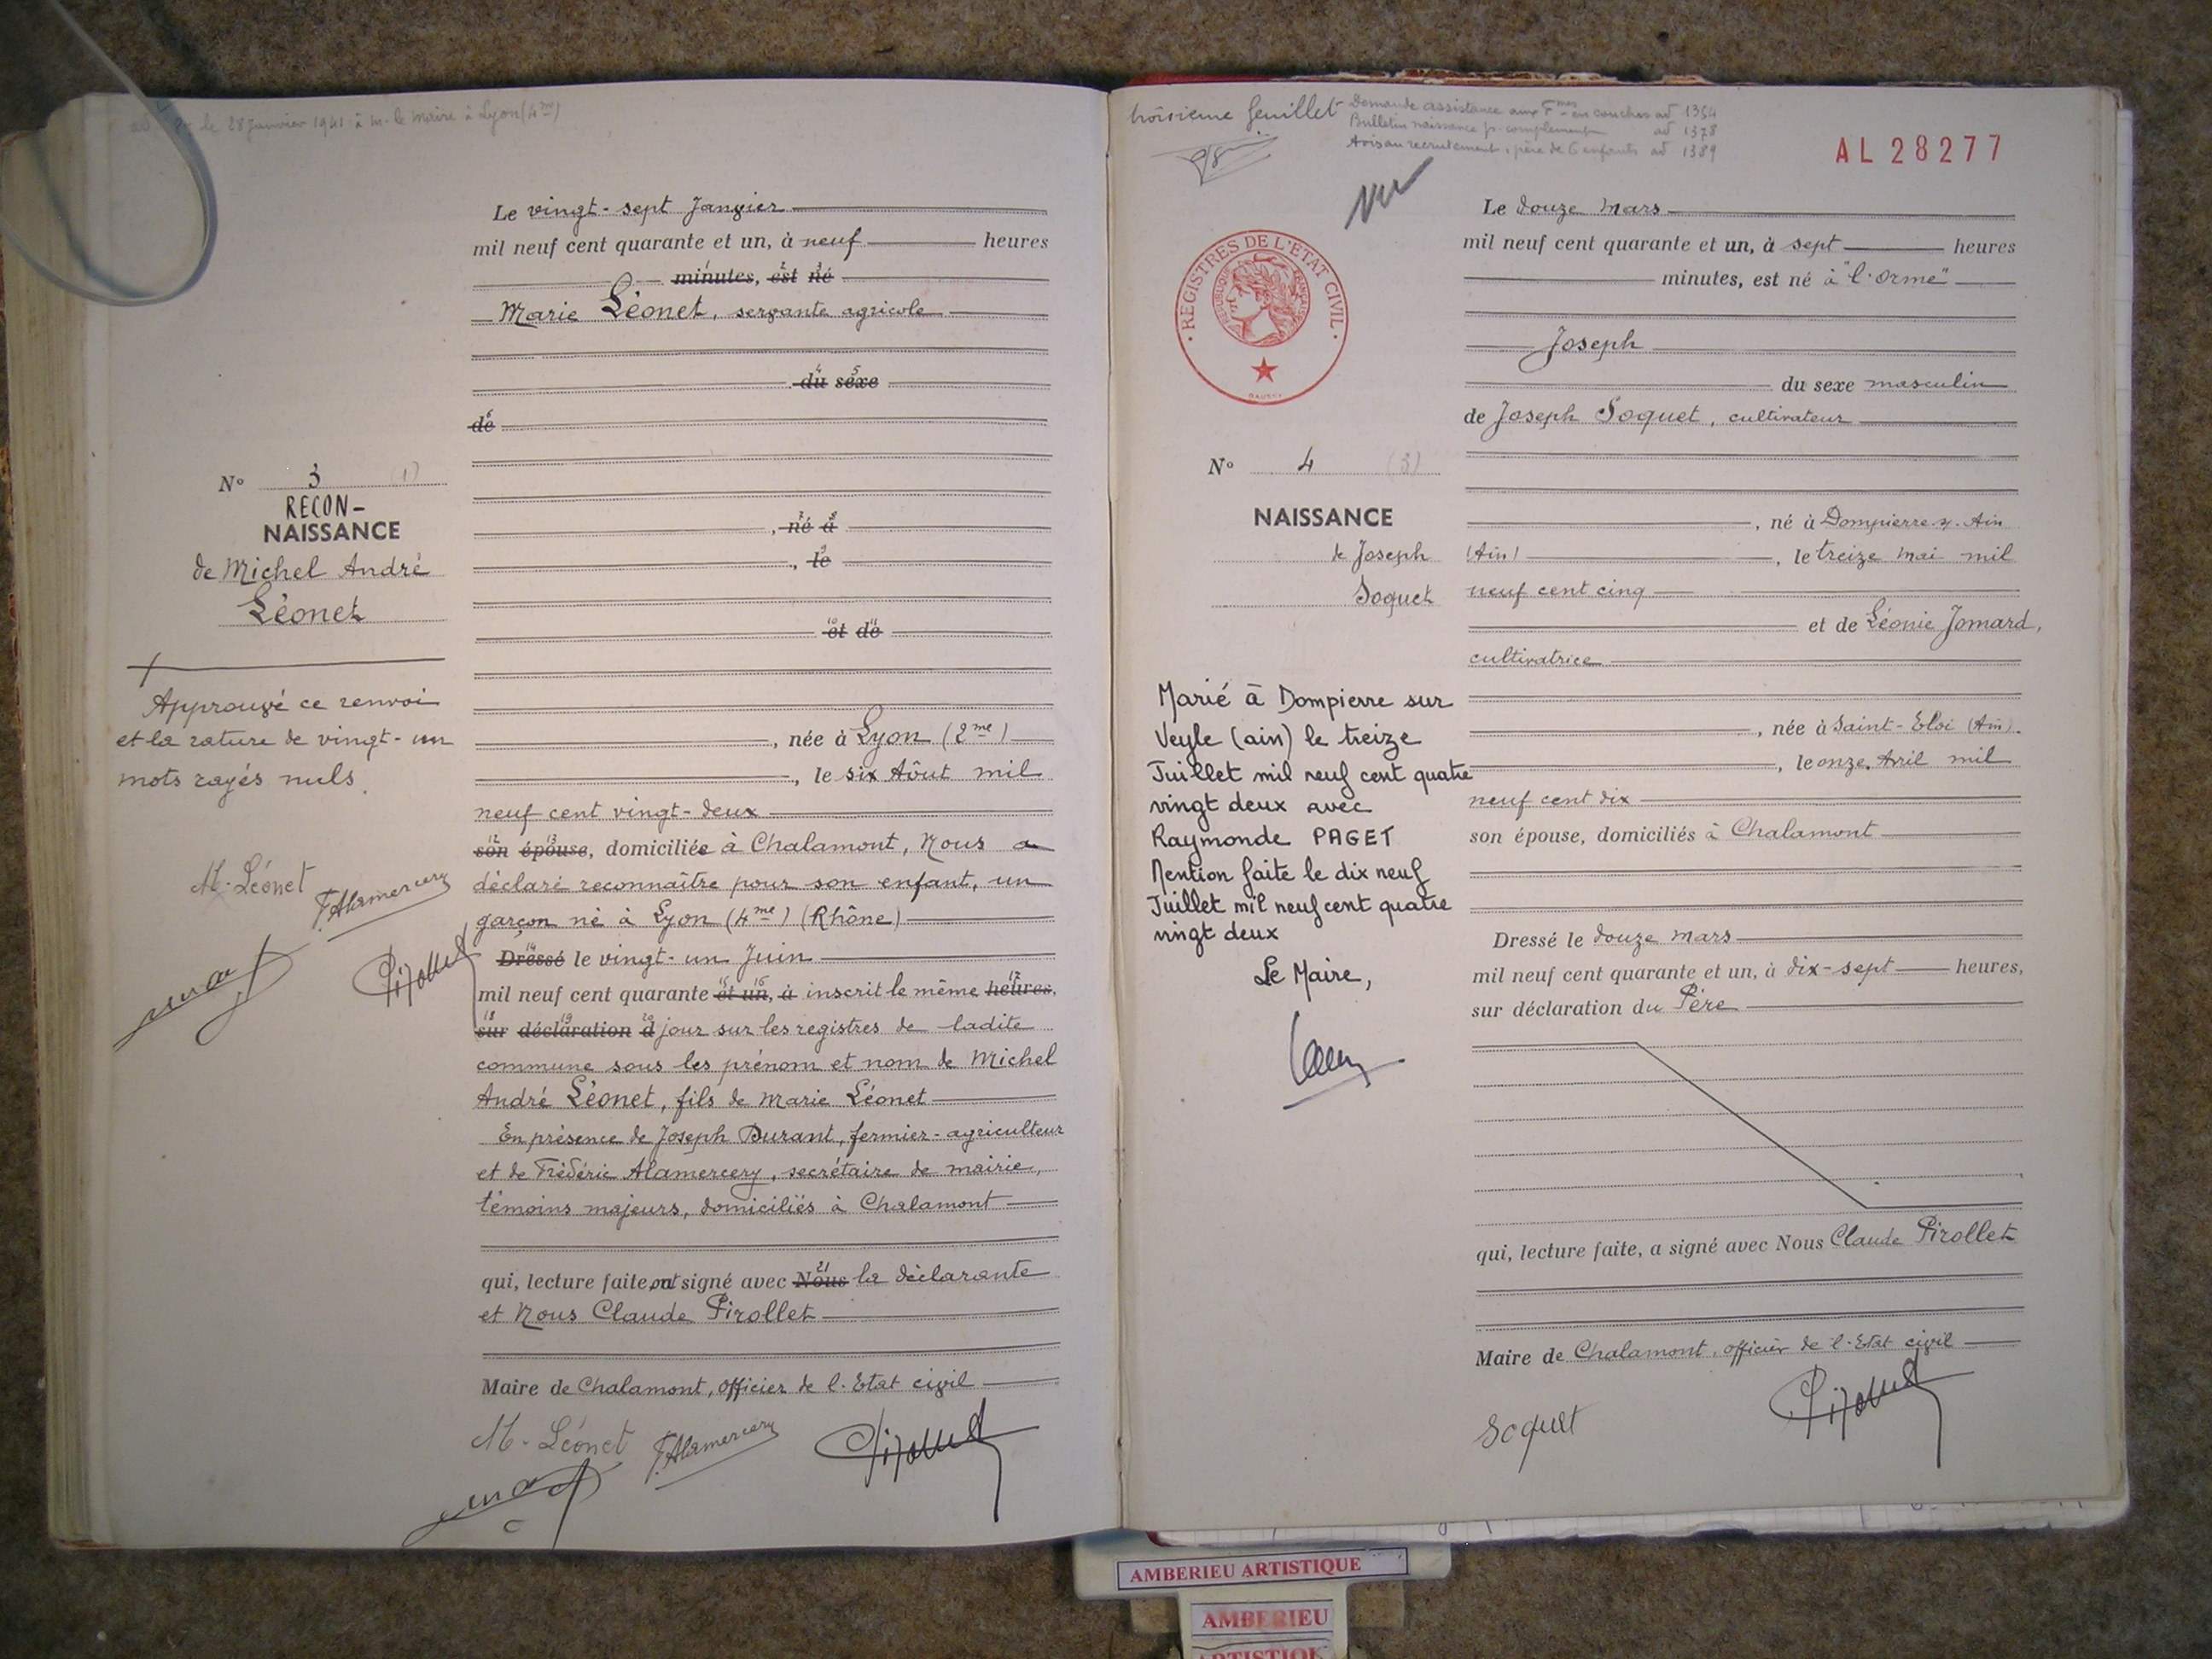 le 28 Janvier 1941 à M. le Maire à Lyon (4me)
Le vingt-sept Janvier
mil neuf cent quarante et un, à neuf heures
minutes, est né
Marie Léonet, servante agricole
du sexe
de
N° 3 (1)
RECON-
NAISSANCE
de Michel André
Léonet
né à
, le
et de
Approuvé ce renvoi
et la rature de vingt-un
mots rayés nuls.
M. Léonet
F. Alamercery
Pirollet
, née à Lyon (2me)
, le six Août mil
neuf cent vingt-deux
son épouse, domiciliée à Chalamont, Nous a
déclaré reconnaître pour son enfant, un
garçon né à Lyon (4me) (Rhône)
Dressé le vingt-un Juin
mil neuf cent quarante et un, à inscrit le même heures,
sur déclaration d jour sur les registres de ladite
commune sous les prénom et nom de Michel
André Léonet, fils de Marie Léonet
En présence de Joseph Durant, fermier-agriculteur
et de Frédéric Alamercery, secrétaire de mairie,
témoins majeurs, domiciliés à Chalamont
qui, lecture faite, ont signé avec Nous la déclarante
et Nous Claude Pirollet
Maire de Chalamont, officier de l'Etat civil
M. Léonet
F. Alamercery
Pirollet
troisième feuillet
Demande assistance aux Fmes en couches ad 1364
Bulletin naissance p. complement ad 1378
Avis au recrutement, père de 6 enfants ad 1389
AL 28277
vu
REGISTRES DE L'ÉTAT CIVIL
RÉPUBLIQUE FRANÇAISE
N° 4 (3)
NAISSANCE
de Joseph
Soquet
Marié à Dompierre sur
Veyle (ain) le treize
Juillet mil neuf cent quatre
vingt deux avec
Raymonde PAGET
Mention faite le dix neuf
Juillet mil neuf cent quatre
vingt deux
Le Maire,
Le douze Mars
mil neuf cent quarante et un, à sept heures
minutes, est né à "l'Orme"
Joseph
du sexe masculin
de Joseph Soquet, cultivateur
, né à Dompierre s. Ain
(Ain), le treize Mai mil
neuf cent cinq
et de Léonie Jomard,
cultivatrice
, née à Saint-Eloi (Ain).
, le onze Avril mil
neuf cent dix
son épouse, domiciliés à Chalamont
Dressé le douze Mars
mil neuf cent quarante et un, à dix-sept heures,
sur déclaration du Père
qui, lecture faite, a signé avec Nous Claude Pirollet
Maire de Chalamont, officier de l'Etat civil
Soquet
Pirollet
AMBERIEU ARTISTIQUE
AMBERIEU